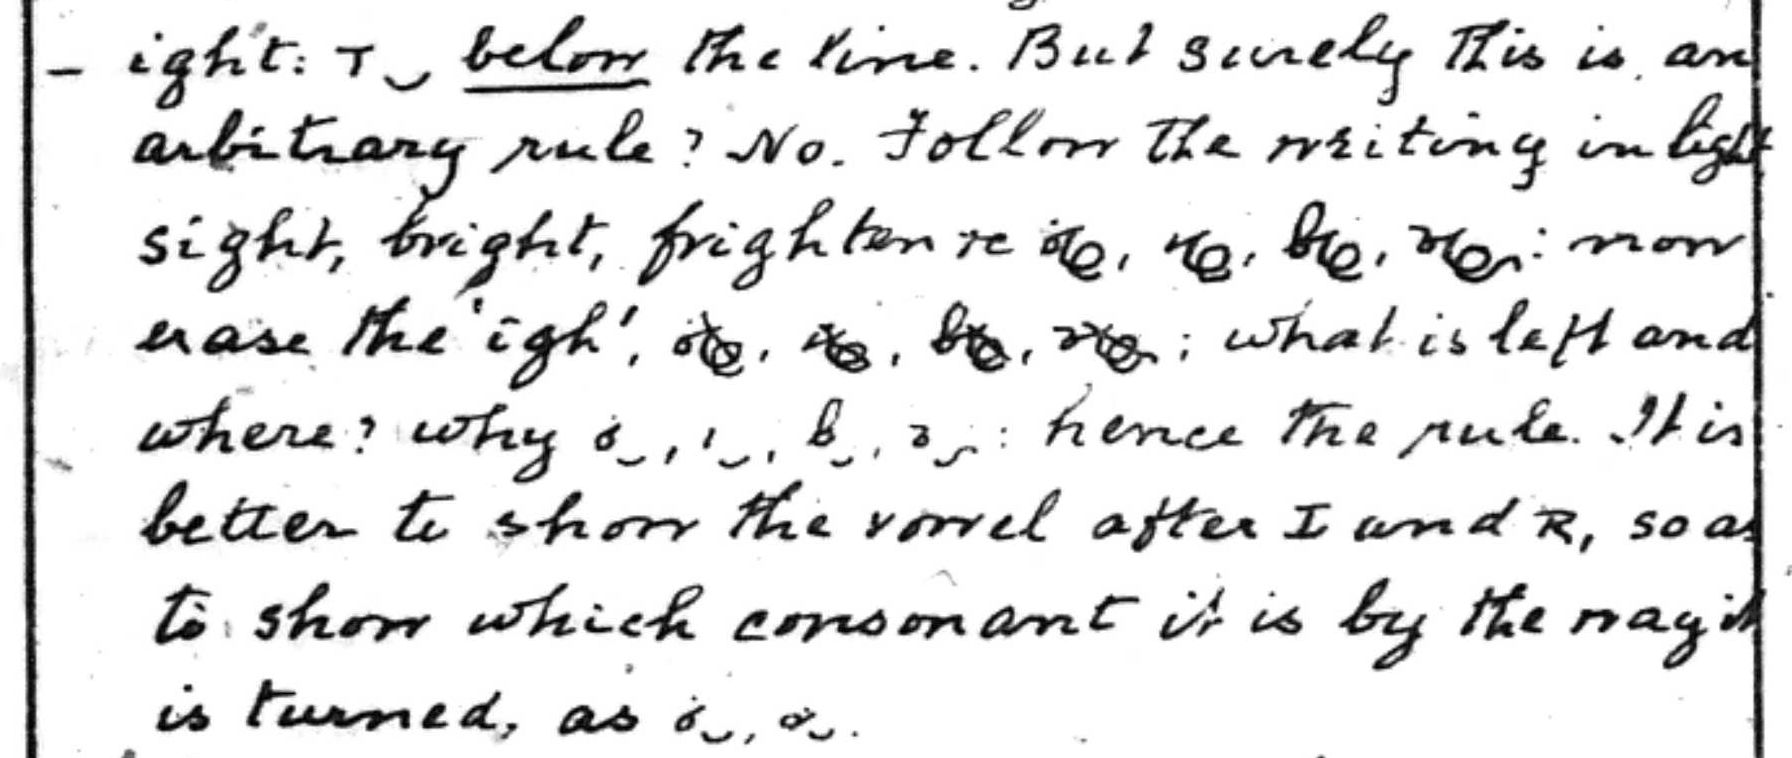 - ight: T ‿ below the line. But surely this is an
arbitrary rule? No. Follow the writing in light
sight, bright, frighten ie
: now
erase the 'igh', ; what is left and
where? why : hence the rule. It is
better to show the vowel after I and R, so as
to show which consonant it is by the way it
is turned, as